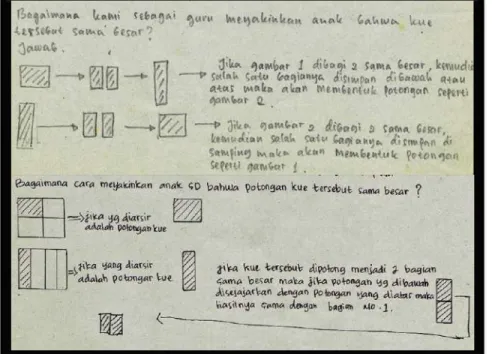 Bagaimana kami sebagai guru meyakinkan anak bahwa kue
tersebut sama besar?
Jawab.
Jika gambar 1 dibagi 2 sama besar, kemudian
salah satu bagianya disimpan dibawah atau
atas maka akan membentuk potongan seperti
gambar 2.
Jika gambar 2 dibagi 2 sama besar,
kemudian salah satu bagianya disimpan di
samping maka akan membentuk potongan
seperti gambar 1.
Bagaimana cara meyakinkan anak SD bahwa potongan kue tersebut sama besar ?
jika yg diarsir
adalah potongan kue
jika yang diarsir
adalah potongan kue.
jika kue tersebut dipotong menjadi 2 bagian
sama besar maka jika potongan yg dibawah
disejajarkan dengan potongan yang diatas maka
hasilnya sama dengan bagian no.1.